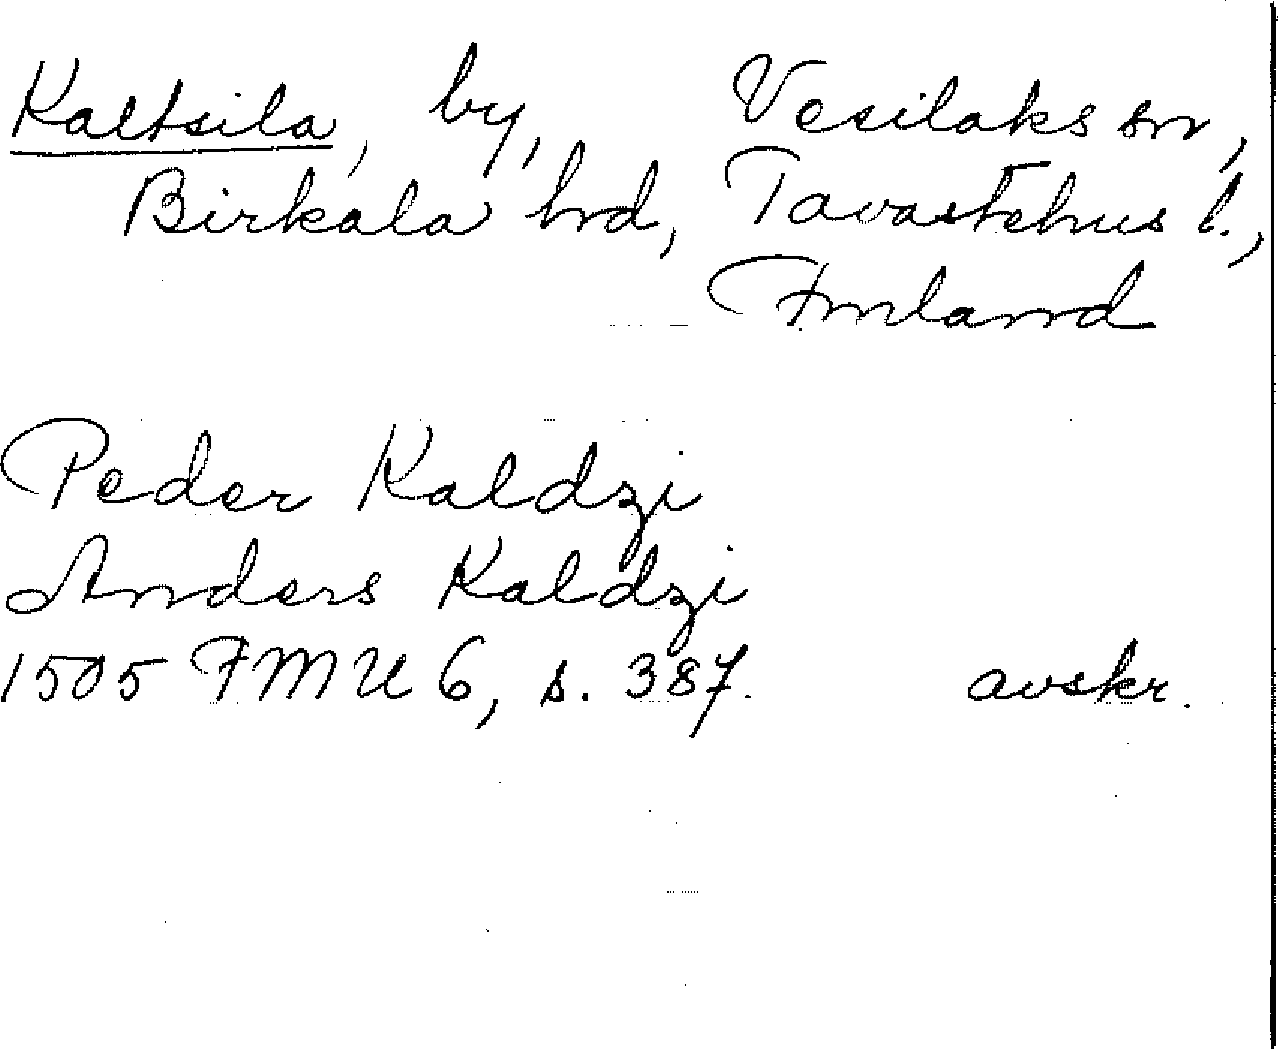 Kaltsila, by, Vesilaks sn,
Birkala hrd, Tavastehus l.,
Finland
Peder Kaldzi
Anders Kaldzi
1505 FMU 6, s. 387. avskr.